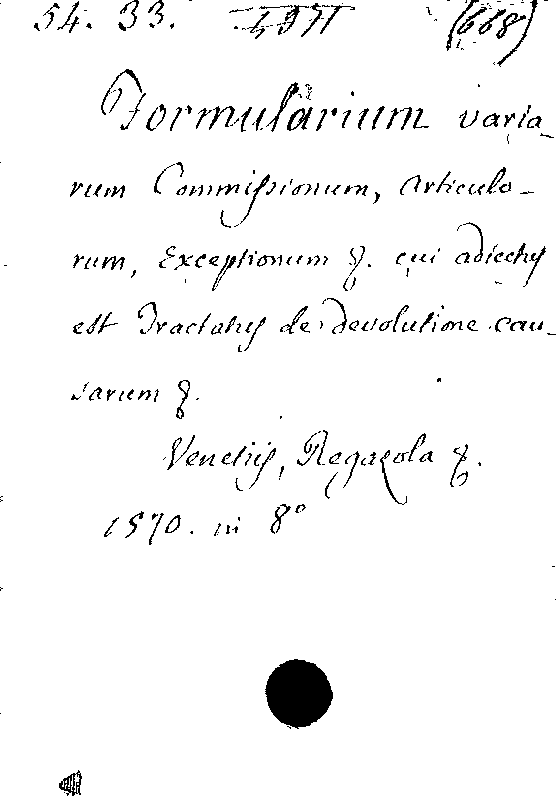 54. 33. 4971 (668)
Formularium varia_
rum Commissionum, articulo_
rum, Exceptionum &. cui adiectus
est Tractatus de devolutione cau_
sarum &.
Venetiis, Regazola &.
1570. in 8°